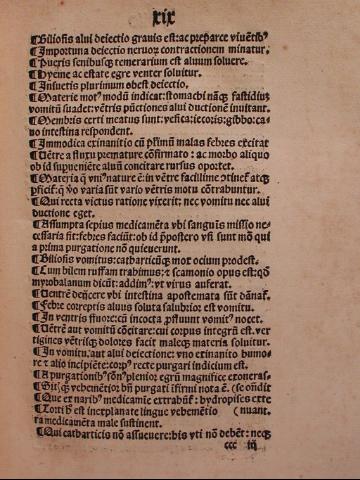 xix
¶Biliosis alui deiectio grauis est: ac preparce viuẽtibꝰ
¶Importuna deiectio neruoꝝ contractionem minatur.
¶Pueris senibusqꝫ temerarium est aluum soluere.
¶Hyeme ac estate egre venter soluitur.
¶Insuetis plurimum obest deiectio.
¶Materie motꝰ modũ indicat: stomachi nãqꝫ fastidiuꝫ
vomitũ suadet: vẽtris pũctiones alui ductionẽ inuitant.
¶Membris certi meatus sunt: vesica: iecoris: gibbo: ca-
uo intestina respondent.
¶Immodica exinanitio cũ primũ malas febres excitat
¶Uẽtre a fluxu premature cõfirmato: ac morbo aliquo
ob id superueniẽte aluũ concitare rursus oportet.
¶Materia nature ẽ: in vẽtre facillime ptinet atqꝫ
vo varia sũt vario vẽtris motu cõtrabuntur.
¶Qui recta victus ratione vixerit: nec vomitu nec alui
ductione eget.
¶Assumpta sepius medicamẽta vbi sanguis missio ne-
cessaria fit: febres faciũt: ob id preposterovsi sunt mõ qui
a prima purgatione nõ quieuerunt.
¶Biliosis vomitus: catharticũqꝫ mot ocium prodest.
¶Cum bilem ruffam trahimus: scamonio opus est: qõ
myrobalanum dicũt: addimꝰ: vt virus auferat.
¶Uentrẽ vbi intestina apostemata sũt dãnat.
¶Febre correptis aluus soluta salubrior est vomitu.
¶In ventris fluore: cũ incocta ꝓfluunt vomitꝰ nocet.
¶Uẽtrẽ aut vomitũ cõcitare: cui corpus integrũ est. ver
tigines vẽtrisqꝫ dolores facit maleqꝫ materia soluitur.
¶In vomitu: aut alui deiectione: vno exinanito humo-
re alio incipiẽte: recte purgari indicium est.
¶A purgationibꝰ sõnꝰ plenior egrũ magnifice exonerat.
¶ vehemẽtior: bñ purgati ifirmi nota ẽ. (se õndit
¶Que ex naribꝰ medicamĩe extrahũt: hydropises exte
¶ est inexplanate lingue vehemẽtio (nuant.
ra medicamẽta male sustinent.
¶Qui catharticis nõ assueuere: his vti nõ debẽt: neqꝫ
ccc iij